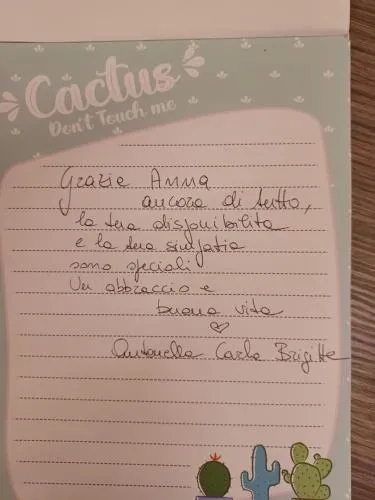 Cactus
Don't Touch me
Grazie Anna
ancora di tutto,
la tua disponibilità
e la tua simpatia
sono speciali
Un abbraccio e
buona vita
♡
Antonella Carla Brigitte